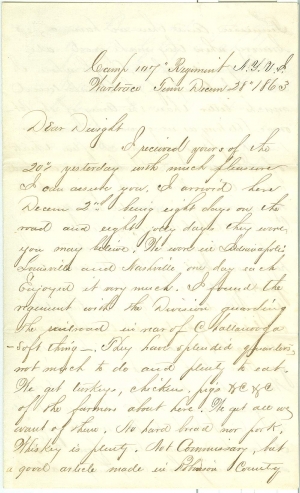 Camp 107th Regiment N.Y.V.I.
Wartrace Tenn Decem 28th 1863
Dear Dwight
I received yours of the
20th yesterday with much pleasure
I can assure you. I arrived here
Decem 2nd being eight days on the
road and eight jolly days they were
you may believe. We were in Indianapolis
Louisville and Nashville one day each
Enjoyed it very much. I found the
regiment with the Division guarding
the railroad in rear of Chattanooga
- soft thing -. They have splendid quarters
not much to do and plenty to eat.
We get turkeys, chickens, pigs &C &C
of the farmers about here. We get all we
want of them. No hard bread nor pork.
Whiskey is plenty. Not Commissary, but
a good article made in Robinson County